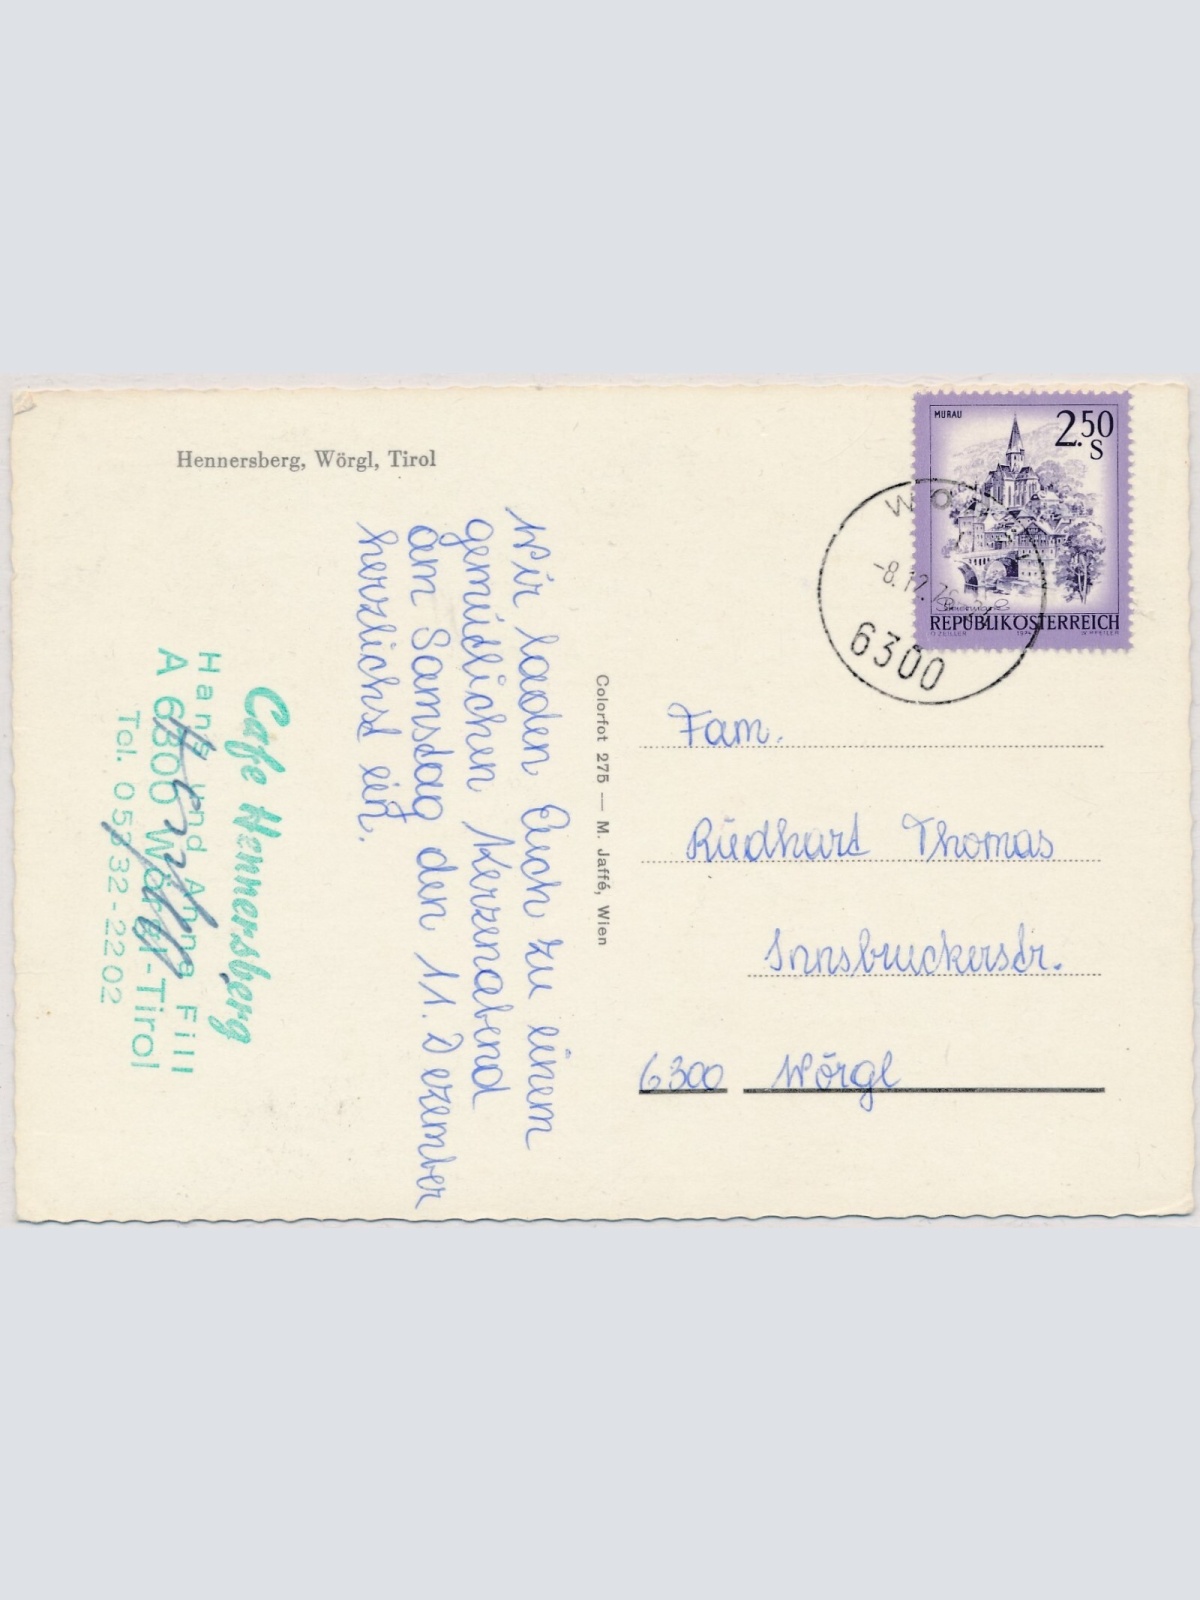 Hennersberg, Wörgl, Tirol
Wir laden Euch zu einem
gemütlichen Kerzenabend
am Samstag den 11. Dezember
herzlichst ein.
Cafe Hennersberg
Hans und Anna Fill
A 6300 Wörgl-Tirol
Tel. 05332-2202
Colorfot 275 — M. Jaffé, Wien
MURAU
2.50
S
REPUBLIK ÖSTERREICH
O ZEILLER 1974 W PFEILER
-8.12.76
6300
Fam.
Riedhart Thomas
Innsbruckerstr.
6300 Wörgl